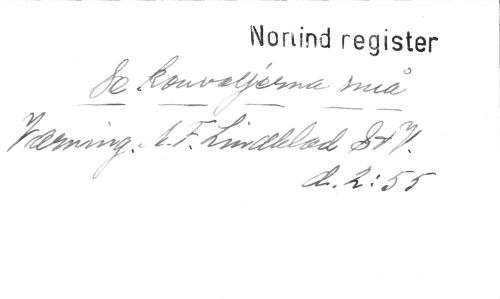 Norlind register
Se konvaljerna små
Værning. A.F. Lindblad S+V.
d. 2:55